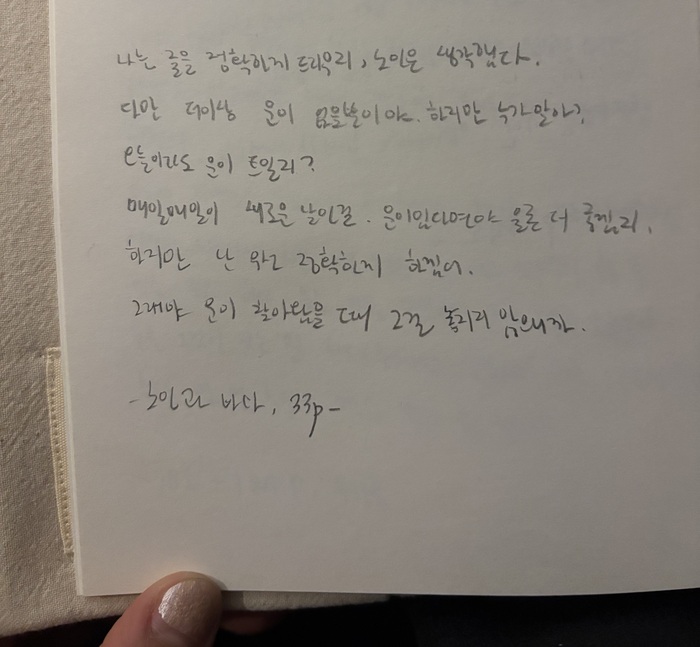 나는 줄을 정확하게 드리우리, 노인은 생각했다.
다만 더이상 운이 없을뿐이야. 하지만 누가알아?
오늘이라도 운이 트일지?
매일매일이 새로운 날인걸. 운이있다면야 물론 더 좋겠지.
하지만 난 우선 정확하게 하겠어.
그래야 운이 찾아왔을 때 그걸 놓치지 않으니까.
-노인과 바다, 33p-